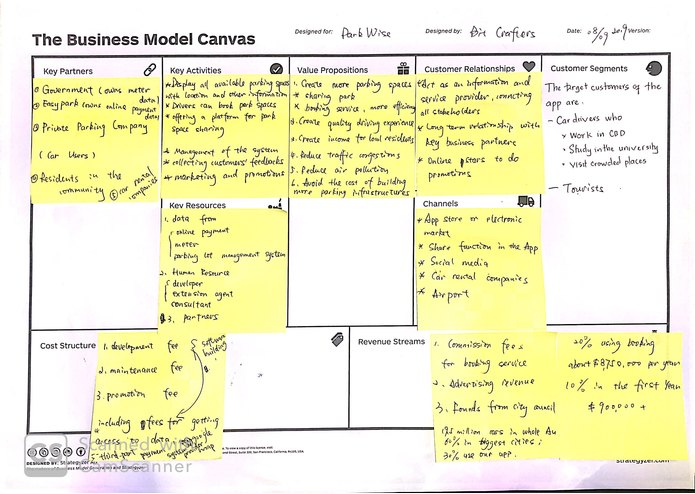 The Business Model Canvas
Designed for:
Park Wise
Designed by:
Bit Crafters
Date:
08/09 2019
Version:
Key Partners
① Government (owns meter data)
② Easypark (owns online payment data)
③ Private Parking Company
(Car Users)
④ Residents in the community
⑤ car rental companies
Key Activities
* Display all available parking spaces
with location and other information
* Drivers can book park spaces
* offering a platform for park
space sharing
* Management of the system
* collecting customers' feedbacks
* marketing and promotions
Value Propositions
1. Create more parking spaces
* sharing park
* booking service, more efficient
2. Create quality driving experience
3. Create income for local residents
4. Reduce traffic congestions
5. Reduce air pollution
6. Avoid the cost of building
more parking infrastructures
Customer Relationships
* Act as an information and
service provider, connecting
all stakeholders
* Long term relationship with
key business partners
* Online posters to do
promotions
Customer Segments
The target customers of the
app are.
- Car drivers who
* Work in CBD
* Study in the university
* visit crowded places
- Tourists
Key Resources
1. data from
online payment
meter
parking lot management system
2. Human Resource
developer
extension agent
consultant
3. partners
Channels
* App store or electronic
market
* Share function in the App
* Social media
* Car rental companies
* Airport
Cost Structure
1. development fee
software building
2. maintenance fee
3. promotion fee
including fees for getting
access to data
third-party payment system
map
Revenue Streams
1. Commission fees
for booking service
2. Advertising revenue
3. Founds from city council
million cars in whole Au
60% in biggest cities;
30% use our app.
20% using booking
about $8,750,000 per year
10% in the first Year
$900,000 +
Scanned with
CS CamScanner
DESIGNED BY: Strategyzer AG
strategyzer.com